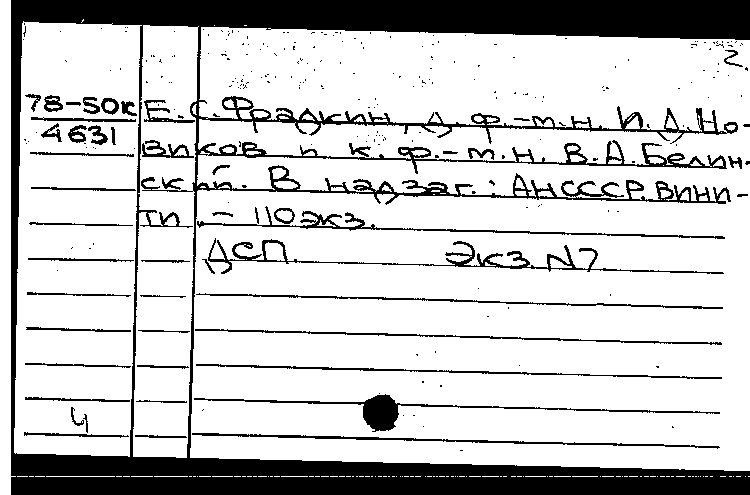 2.
78-50к Е. С. Фрадкин, д. ф.-т.н. И. Д. Но-
4631 виков и к. ф.-т.н. В. А. Белин-
ский. В надзаг.: АНСССР. ВИНИ-
ТИ. - 110 экз.
ДСП. Экз. N7
4